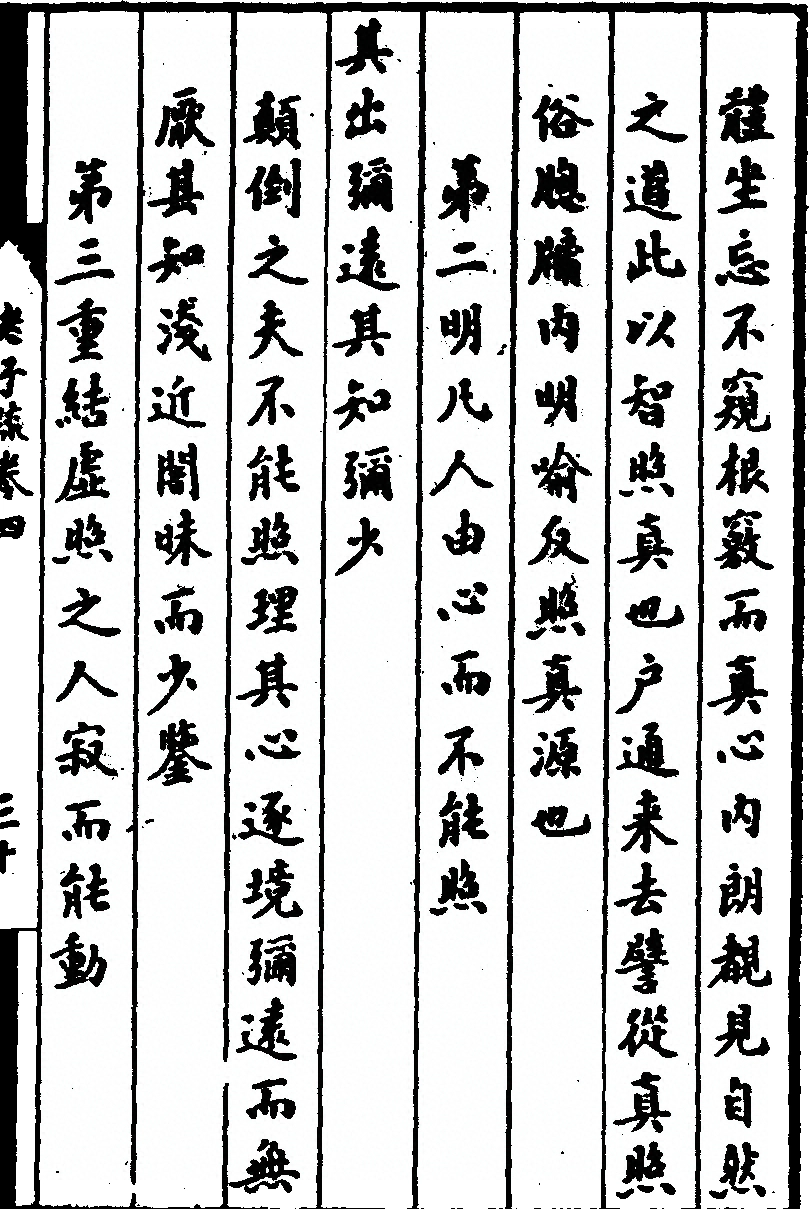 體坐忘不窺根竅而真心内朗覩見自然
之道此以智照真也户通来去譬從真照
俗牎牖内明喻反照真源也
第二明凡人由心而不能照
其出彌遠其知彌少
顛倒之夫不能照理其心逐境彌遠而無
厥其知淺近闇昧而少鑒
第三重結虛照之人寂而能動
老子疏卷四
三十